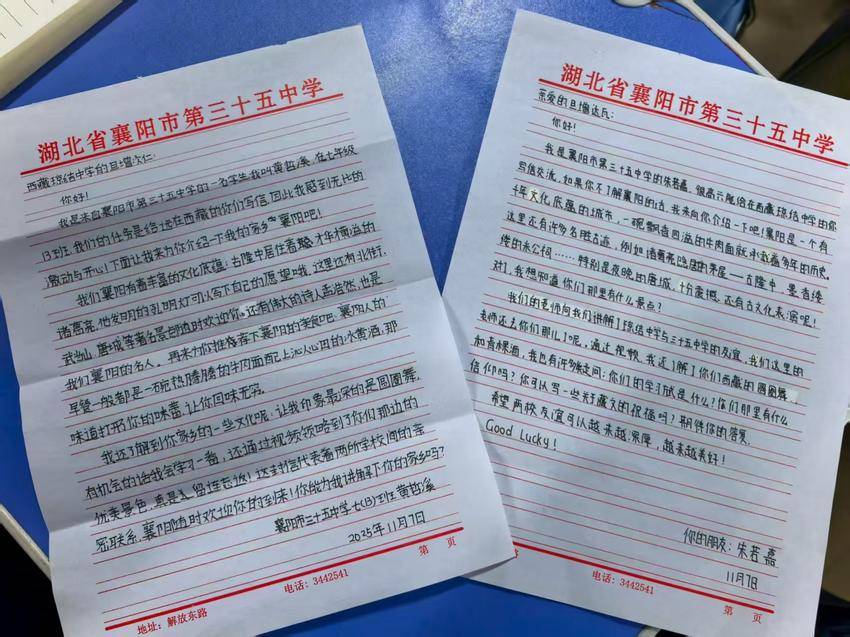 湖北省襄阳市第三十五中学
西藏琼结中学的旦增次仁:
你好!
我是来自襄阳市第三十五中学的一名学生,我叫黄哲溪,在七年级
13班.我们的任务是给远在西藏的你们写信.因此我感到无比的
激动与开心!下面让我来为你介绍一下我的家乡"襄阳吧!
我们襄阳有着丰富的文化底蕴:古隆中居住着 才华横溢的
诸葛亮,他发明的孔明灯可以写下自己的愿望哦,这里还有北街,
武当山,唐城等著名景都随时欢迎你.还有伟大的诗人孟浩然,也是
我们襄阳的名人。再来为你推荐下襄阳的美食吧,襄阳人的
早餐一般都是一碗热腾腾的牛肉面配上沁人心月的冰黄酒,那
味道打开你的味蕾,让你回味无穷.
我还了解到你家乡的一些文化呢:让我印象最深的是圆圈舞,
有机会的话我会学习一番,还通过视频领略到了你们那边的
优美景色,真是人留连忘返!这封信代表着两所学校间的亲
密联系,襄阳随时欢迎你的到来!你能为我讲解下你的家乡吗?
襄阳市三十五中学七(13)班 黄哲溪
2025年11月7日
第 页
电话:3442541
地址:解放东路
湖北省襄阳市第三十五中学
亲爱的旦增达瓦:
你好!
我是襄阳市第三十五中学的朱若嘉,很高兴能给在西藏琼结中学的你
写信交流,如果你不了解襄阳的话,我来向你介绍一下吧!襄阳是一个有
千年文化底蕴的城市,一碗飘香四溢的牛肉面就承载着多年的历史.
这里还有许多名胜古迹,例如诸葛亮隐居的茅屋——古隆中,墨香缭
绕的米公祠……特别是夜晚的唐城,十分豪横,还有古文化表演呢!
对了,我想知道你们那里有什么景点?
我们的老师向我们讲解了琼结中学与三十五中学的友谊,我们这里的
老师还去你们那儿了呢,通过视频,我还了解了你们西藏的圆圈舞
和青稞酒,我也有许多疑问:你们的学习 是什么?你们那里有什么
信仰吗?你可以写一些关于藏文的祝福吗?期待你的答复.
希望两校友谊可以越来越深厚,越来越美好!
Good Lucky!
你的朋友:朱若嘉
11月7日
电话:3442541
第 页